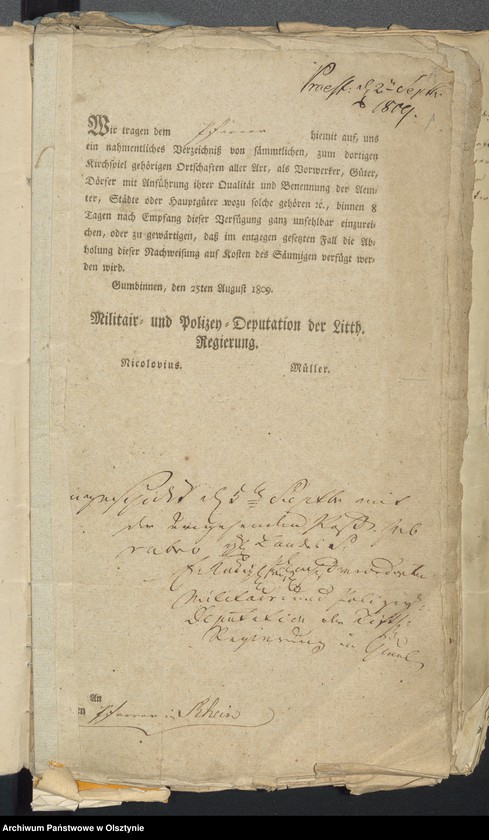 Praes. d 2ten Septbr.
1809.
Wir tragen dem Pfarrer hiemit auf, uns
ein nahmentliches Verzeichniß von sämmtlichen, zum dortigen
Kirchspiel gehörigen Ortschaften aller Art, als Vorwerker, Güter,
Dörfer mit Anführung ihrer Qualität und Benennung der Aem-
ter, Städte oder Hauptgüter wozu solche gehören ꝛc., binnen 8
Tagen nach Empfang dieser Verfügung ganz unfehlbar einzurei-
chen, oder zu gewärtigen, daß im entgegen gesetzten Fall die Ab-
holung dieser Nachweisung auf Kosten des Säumigen verfügt wer-
den wird.
Gumbinnen, den 25ten August 1809.
Militair- und Polizey-Deputation der Litth.
Regierung.
Nicolovius. Müller.
d 5ten Septbr mit
der Post. sub
rubro
Militair und Polizey-
Deputation der Litth:
Regierung in
An
Pfarrer in Rhein
Archiwum Państwowe w Olsztynie